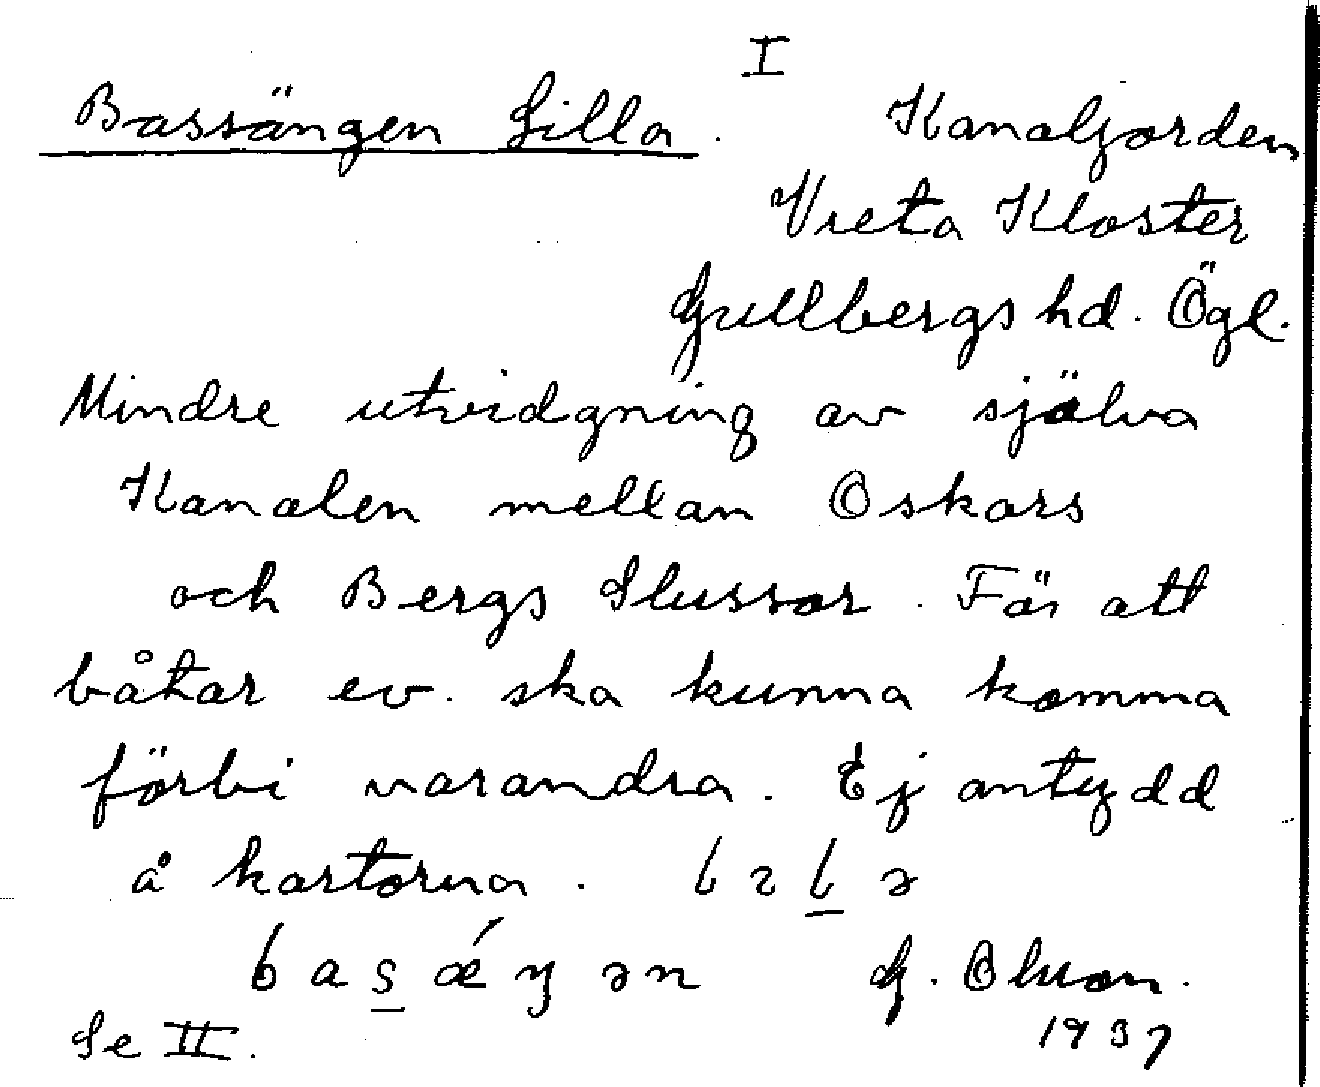 I
Bassängen Lilla. Kanaljorden
Vreta Kloster
Gullbergs hd. Ögl.
Mindre utvidgning av själva
Kanalen mellan Oskars
och Bergs Slussar. För att
båtar ev. ska kunna komma
förbi varandra. Ej antydd
å kartorna.
basǽŋən G.
Se II. 1937